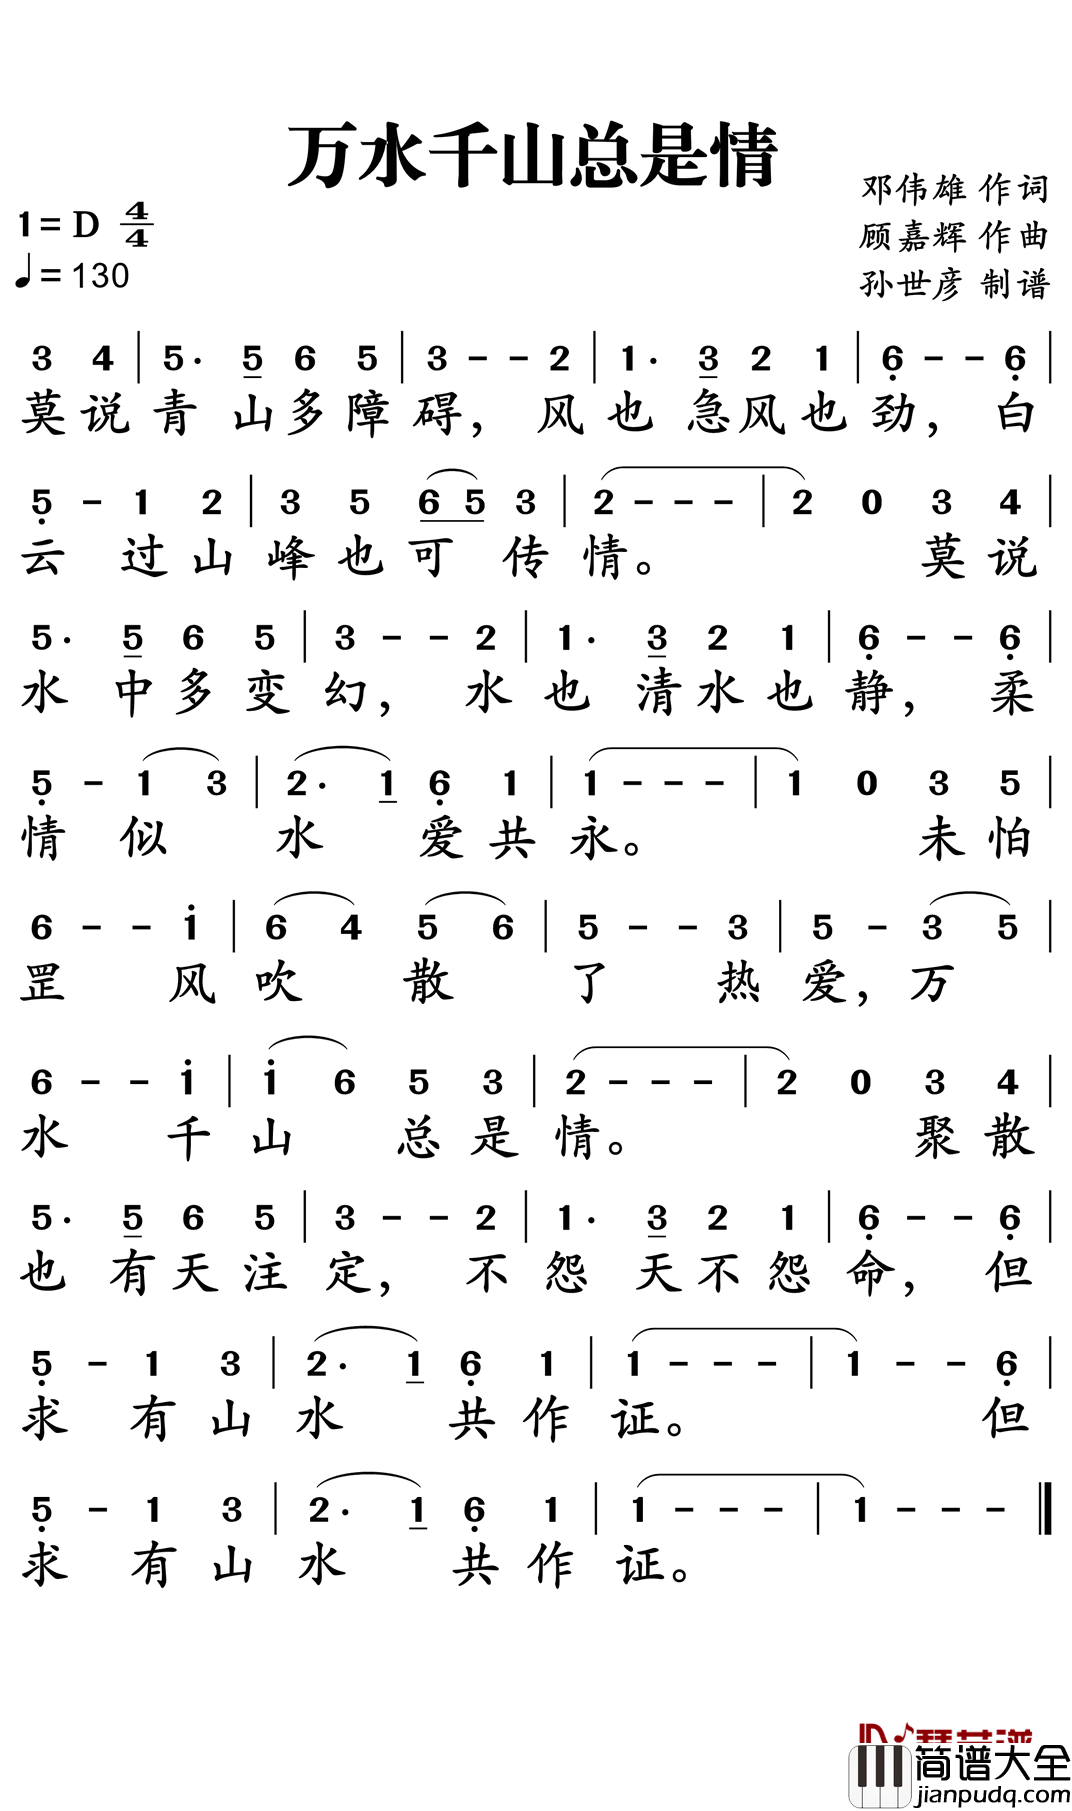 万水千山总是情
邓伟雄 作词
1= D 4/4
顾嘉辉 作曲
♩= 130
孙世彦 制谱
3 4 | 5· 5 6 5 | 3 - - 2 | 1· 3 2 1 | 6̣ - - 6̣ |
莫说青山多障碍，风也急风也劲，白
5̣ - 1 2 | 3 5 6 5 3 | 2 - - - | 2 0 3 4 |
云过山峰也可传情。莫说
5· 5 6 5 | 3 - - 2 | 1· 3 2 1 | 6̣ - - 6̣ |
水中多变幻，水也清水也静，柔
5̣ - 1 3 | 2· 1 6̣ 1 | 1 - - - | 1 0 3 5 |
情似水爱共永。未怕
6 - - i | 6 4 5 6 | 5 - - 3 | 5 - 3 5 |
罡风吹散了热爱，万
6 - - i | i 6 5 3 | 2 - - - | 2 0 3 4 |
水千山总是情。聚散
5· 5 6 5 | 3 - - 2 | 1· 3 2 1 | 6̣ - - 6̣ |
也有天注定，不怨天不怨命，但
5̣ - 1 3 | 2· 1 6̣ 1 | 1 - - - | 1 - - 6̣ |
求有山水共作证。但
5̣ - 1 3 | 2· 1 6̣ 1 | 1 - - - | 1 - - - ‖
求有山水共作证。
简谱大全
jianpudq.com